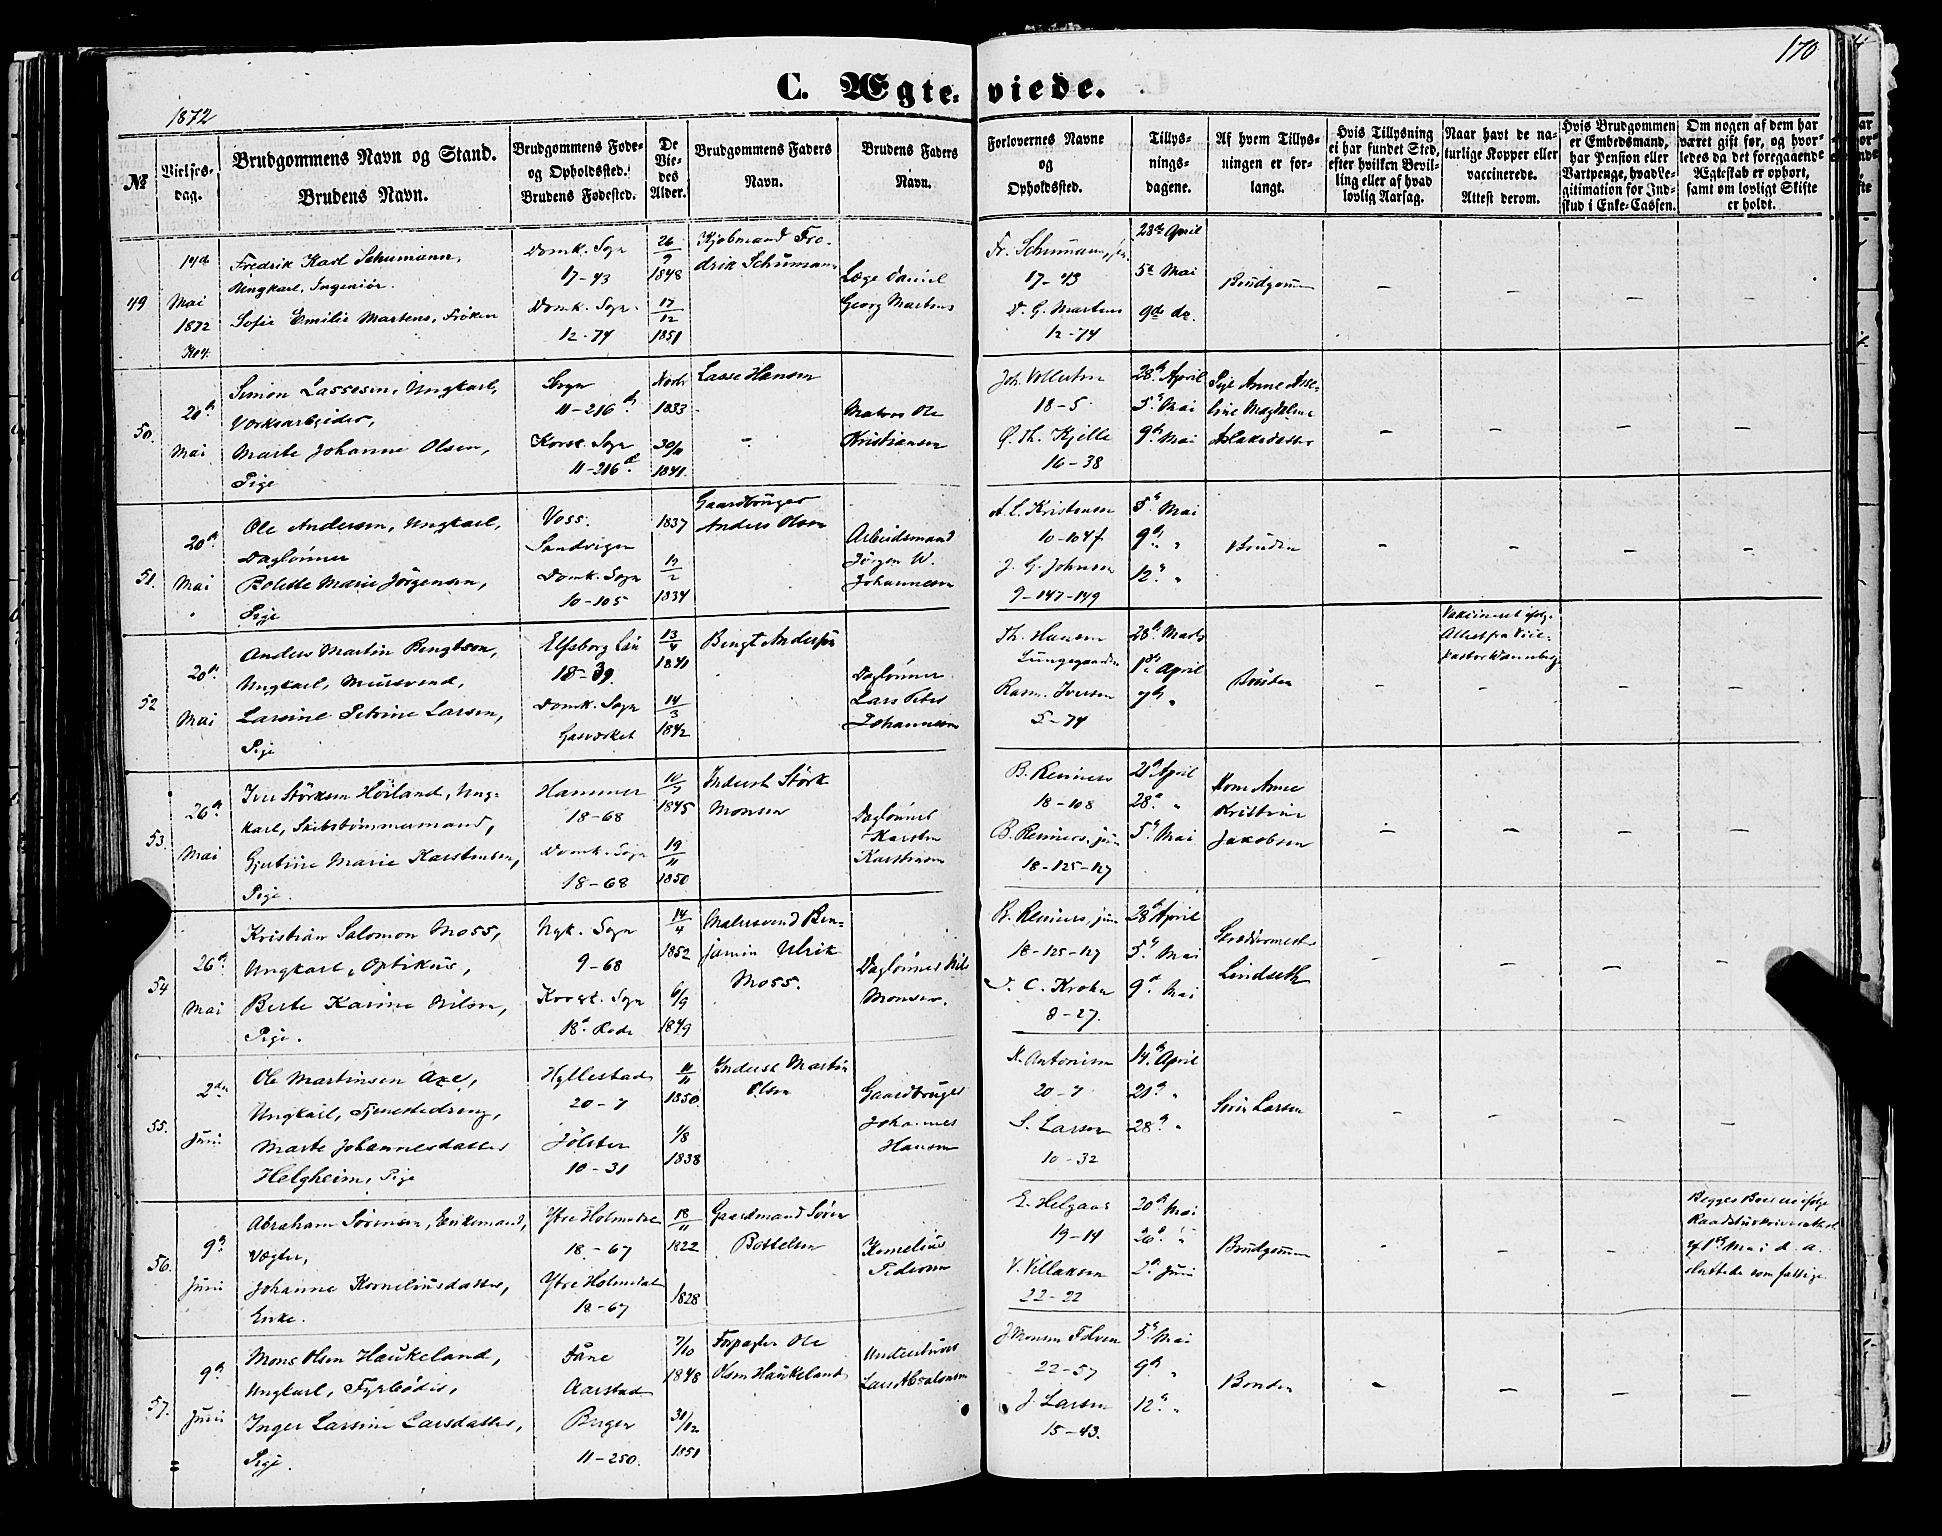 170
C. Ægteviede.
1872
№
Vielses-
dag.
Brudgommens Navn og Stand.
Brudens Navn.
Brudgommens Føde-
og Opholdssted.
Brudens Fødested.
De
Vie-
des
Alder.
Brudgommens Faders
Navn.
Brudens Faders
Navn.
Forlovernes Navne
og
Opholdssted.
Tillys-
nings-
dagene.
Af hvem Tillys-
ningen er for-
langt.
Hvis Tillysning
ei har fundet Sted,
efter hvilken Bevil-
ling eller af hvad
lovlig Aarsag.
Naar havt de na-
turlige Kopper eller
vaccinerede.
Attest derom.
Hvis Brudgommen
er Embedsmand,
har Pension eller
Vartpenge, hvad Le-
gitimation for Ind-
skud i Enke-Cassen.
Om nogen af dem har
været gift før, og hvor-
ledes da det foregaaende
Ægteskab er ophørt,
samt om lovligt Skifte
er holdt.
49
14de
Mai
1872
Fredrik Karl Schumann,
Ungkarl, Ingeniør.
Sofie Emilie Martens, Frøken
Domk. Sogn
17-43
Domk. Sogn.
12-74
26/9
1848
17/12
1851
Kjøbmand Fre-
drik Schumann
Læge Daniel
Georg Martens
Fr. Schumann,
17-43
D. G. Martens
12-74
28de April
5te Mai
9de do.
Brudgommen
50.
20de
Mai
Simon Lassesen, Ungkarl,
Værksarbeider,
Marte Johanne Olsen,
Pige
11-216
Korsk. Sogn
11-216
1833
30/11
1841.
Lasse Hansen
Matros Ole
Kristiansen
18-5
Kjelle
16-38
28de April
5te Mai
9de Mai
Pige Anne
Magdalene
51.
20de
Mai
Ole Andersen, Ungkarl,
Daglønner
Bolette Marie Jørgensen,
Pige
Voss.
Sandvigen
Domk. Sogn
10-105
1837
1834
Gaardbruger
Anders Olsen
Arbeidsmand
Jørgen W.
Johannesen
A. C. Kristensen
10-104f
J. G. Johnsen
9-147-149
5te Mai
9de "
12te "
Bruden
52
20de
Mai
Anders Martin Bengtson,
Ungkarl, Mursvend,
Larsine Petrine Larsen,
Pige
Elfsborg Län
18-39.
Domk. Sogn
Gasværket
13/4
1841
14/3
1842
Bengt Anderson
Daglønner
Lars Peter
Johannesen
Th. Hansen
Lungegaarden
Rasm. Iversen
5-74
28de Marts
1ste April
7de "
Bruden
53.
26de
Mai
Iver Størksen Høiland, Ung-
karl, Skibstømmermand,
Gjertine Marie Karstensen,
Pige.
Hammer
18-68
Domk. Sogn
18-68
1845
19/11
1850
Inderst Størk
Monsen
Daglønner
Karsten
Karstensen
B. Reimers
18-108
B. Reimers, jun
18-125-127
21de April
28de "
5te Mai
Kone Anne
Kristine
Jakobsen
54
26de
Mai
Kristian Salomon Moss,
Ungkarl, Optikus,
Berte Karine Nilsen,
Pige.
Nyk. Sogn
9-68
Korsk. Sogn
18de Rode
14/4
1852
6/9
1849
Malersvend Ben-
jamin Ulrik
Moss.
Daglønner Nils
Monsen.
B. Reimers, jun
18-125-127
C. Krohn
8-27.
28de April
5te Mai
9de Mai
Skræddermester
Lindseth
55.
2den
Juni
Ole Martinsen Axe,
Ungkarl, Tjenestedreng,
Marte Johannesdatter
Helgheim, Pige
Hyllestad
20-7
Jølster
10-31
11/11
1850.
1/8
1838
Inderst Martin
Olsen
Gaardbruger
Johannes
Hansen
Antonisen
20-7
S. Larsen
10-32
14de April
21de "
28de "
Søren Larsen
56.
9de
Juni
Abraham Sørensen, Enkemand,
Vægter,
Johanne Korneliusdatter,
Enke.
Ytre Holmedal
18-67
Ytre Holmedal
18-67
18/11
1822
1828
Gaardmand Søren
Bottelsen
Kornelius
Pedersen
E. Helgaas
19-14
V. Villaksen
22-22
20de Mai
26de "
2den Juni
Brudgommen
Begges Boer
d. a.
sluttede som fattige.
57.
9de
Juni
Mons Olsen Haukeland,
Ungkarl, Fyrbøder,
Inger Larsine Larsdatter,
Pige.
Fane
Aarstad
Bergen
11-250.
7/10
1848
31/12
1851
Forpagter Ole
Olsen Haukeland
Lars Absalonsen
J. Monsen
22-57
J. Larsen
15-43.
5te Mai
9de "
12te "
Bruden